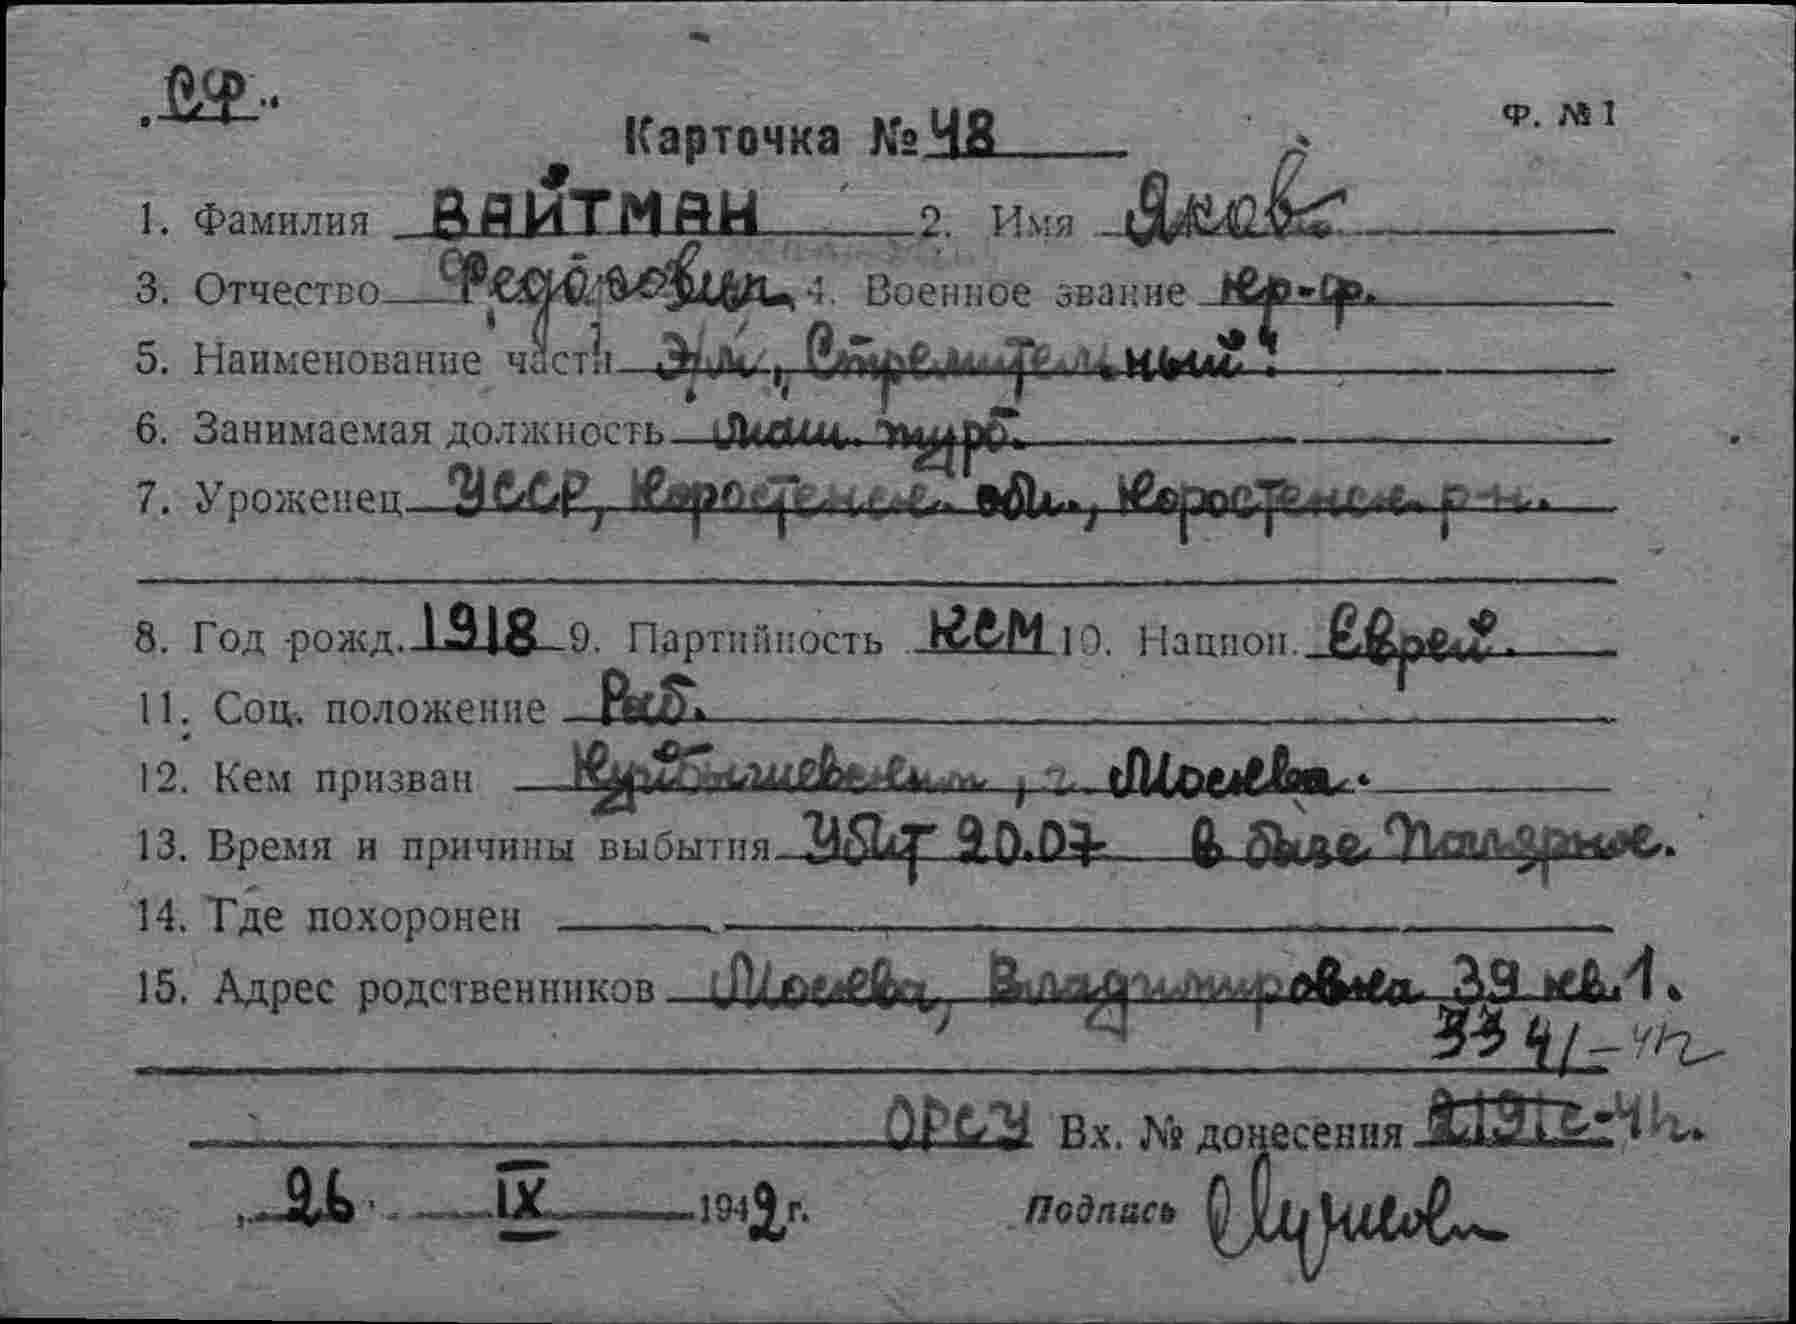 СФ
Ф. №1
Карточка № 48
1. Фамилия ВАЙТМАН 2. Имя Яков
3. Отчество Федорович 4. Военное звание кр-ф.
5. Наименование части Э/м „Стремительный"
6. Занимаемая должность маш. турб.
7. Уроженец УССР, Коростенск. обл., Коростенск. р-н.
8. Год рожд. 1918 9. Партийность КСМ 10. Национ. Еврей.
11. Соц. положение Раб.
12. Кем призван Куйбышевским, г. Москва.
13. Время и причины выбытия Убит 20.07 в базе Полярное.
14. Где похоронен
15. Адрес родственников Москва, Владимировка 39 кв. 1.
3341-42
ОРСУ Вх. № донесения
„26" IX 1942 г. Подпись